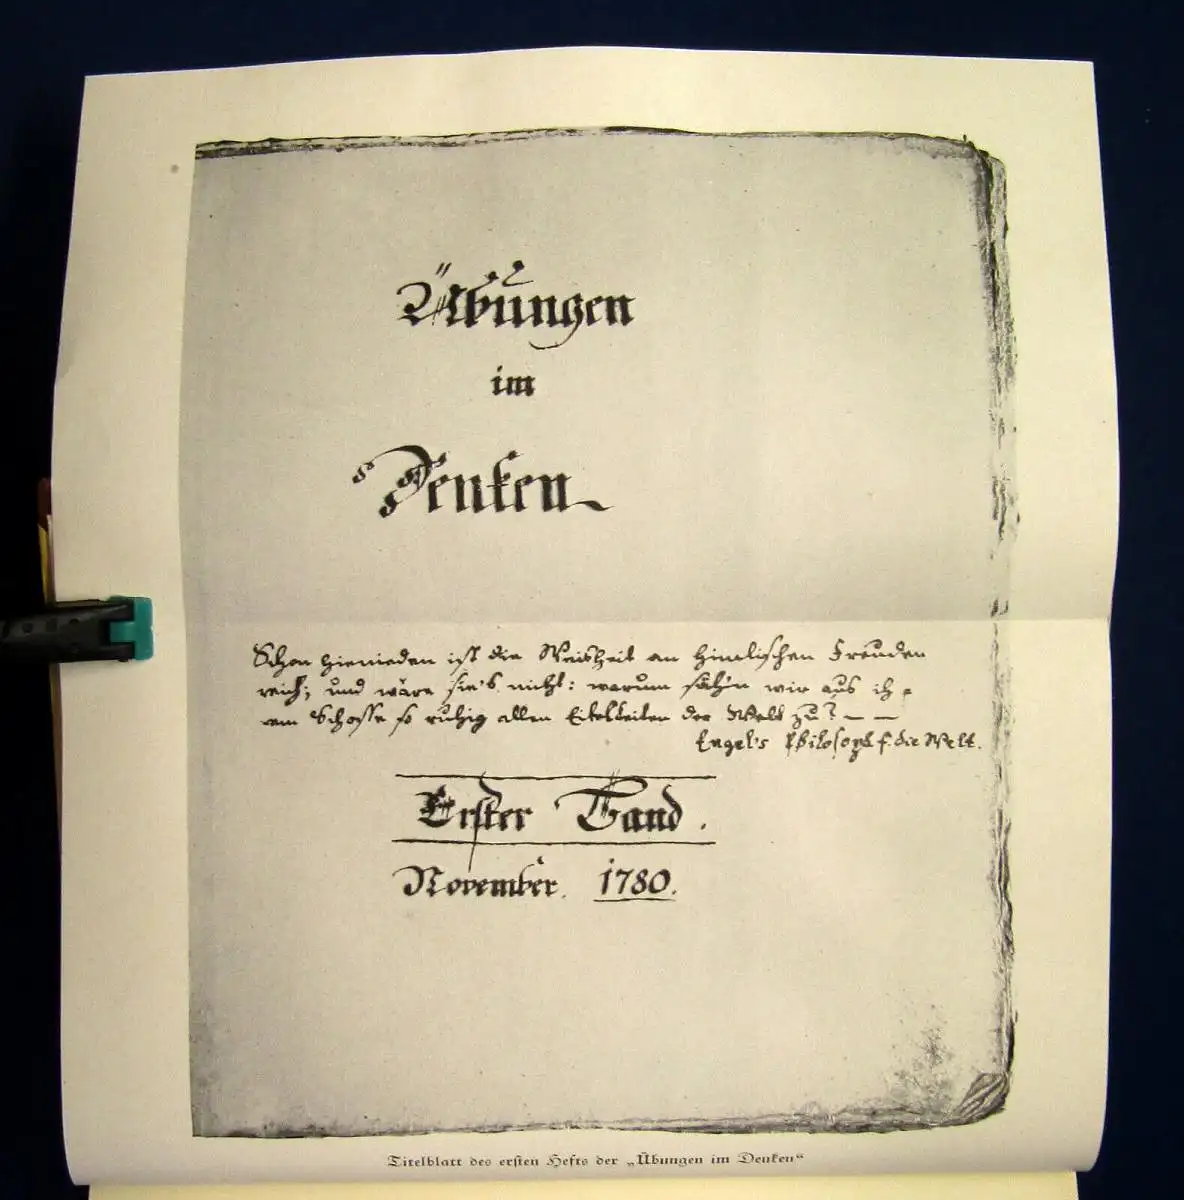 Übungen
im
Denken
Schon hienieden ist die Weisheit an himlischen Freuden
reich; und wäre sie's nicht: warum säh'n wir aus ih-
rem Schosse so ruhig allen Eitelkeiten der Welt zu? — —
Engel's Philosoph f. die Welt.
Erster Band.
November. 1780.
Titelblatt des ersten Hefts der „Übungen im Denken“